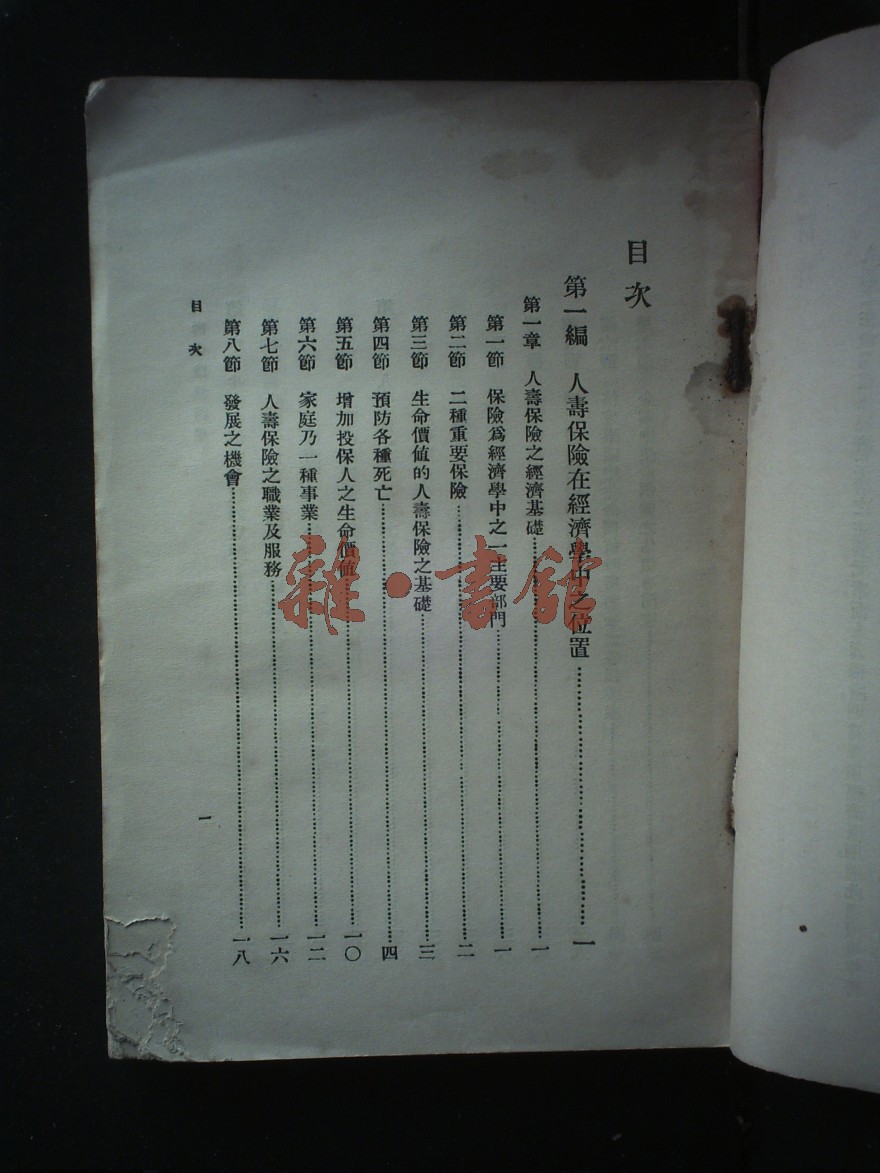 目次
第一編 人壽保險在經濟學中之位置……一
第一章 人壽保險之經濟基礎……一
第一節 保險爲經濟學中之一主要部門……一
第二節 二種重要保險……二
第三節 生命價値的人壽保險之基礎……三
第四節 預防各種死亡……四
第五節 增加投保人之生命價値……一〇
第六節 家庭乃一種事業……一二
第七節 人壽保險之職業及服務……一六
第八節 發展之機會……一八
目次
一
雜·書館